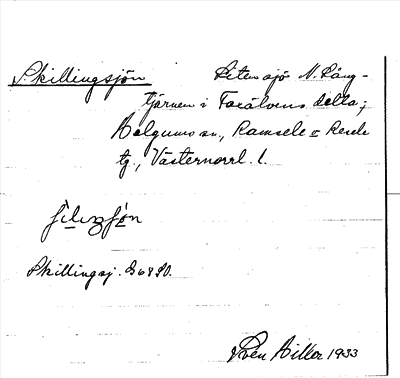 Skillingsjön Liten sjö N. Lång-
tjärnen i Faxälvens delta;
Helgums sn., Ramsele o Resele
tg., Västernorrl. l.
Skillingsj. 
Sven Hiller 1933